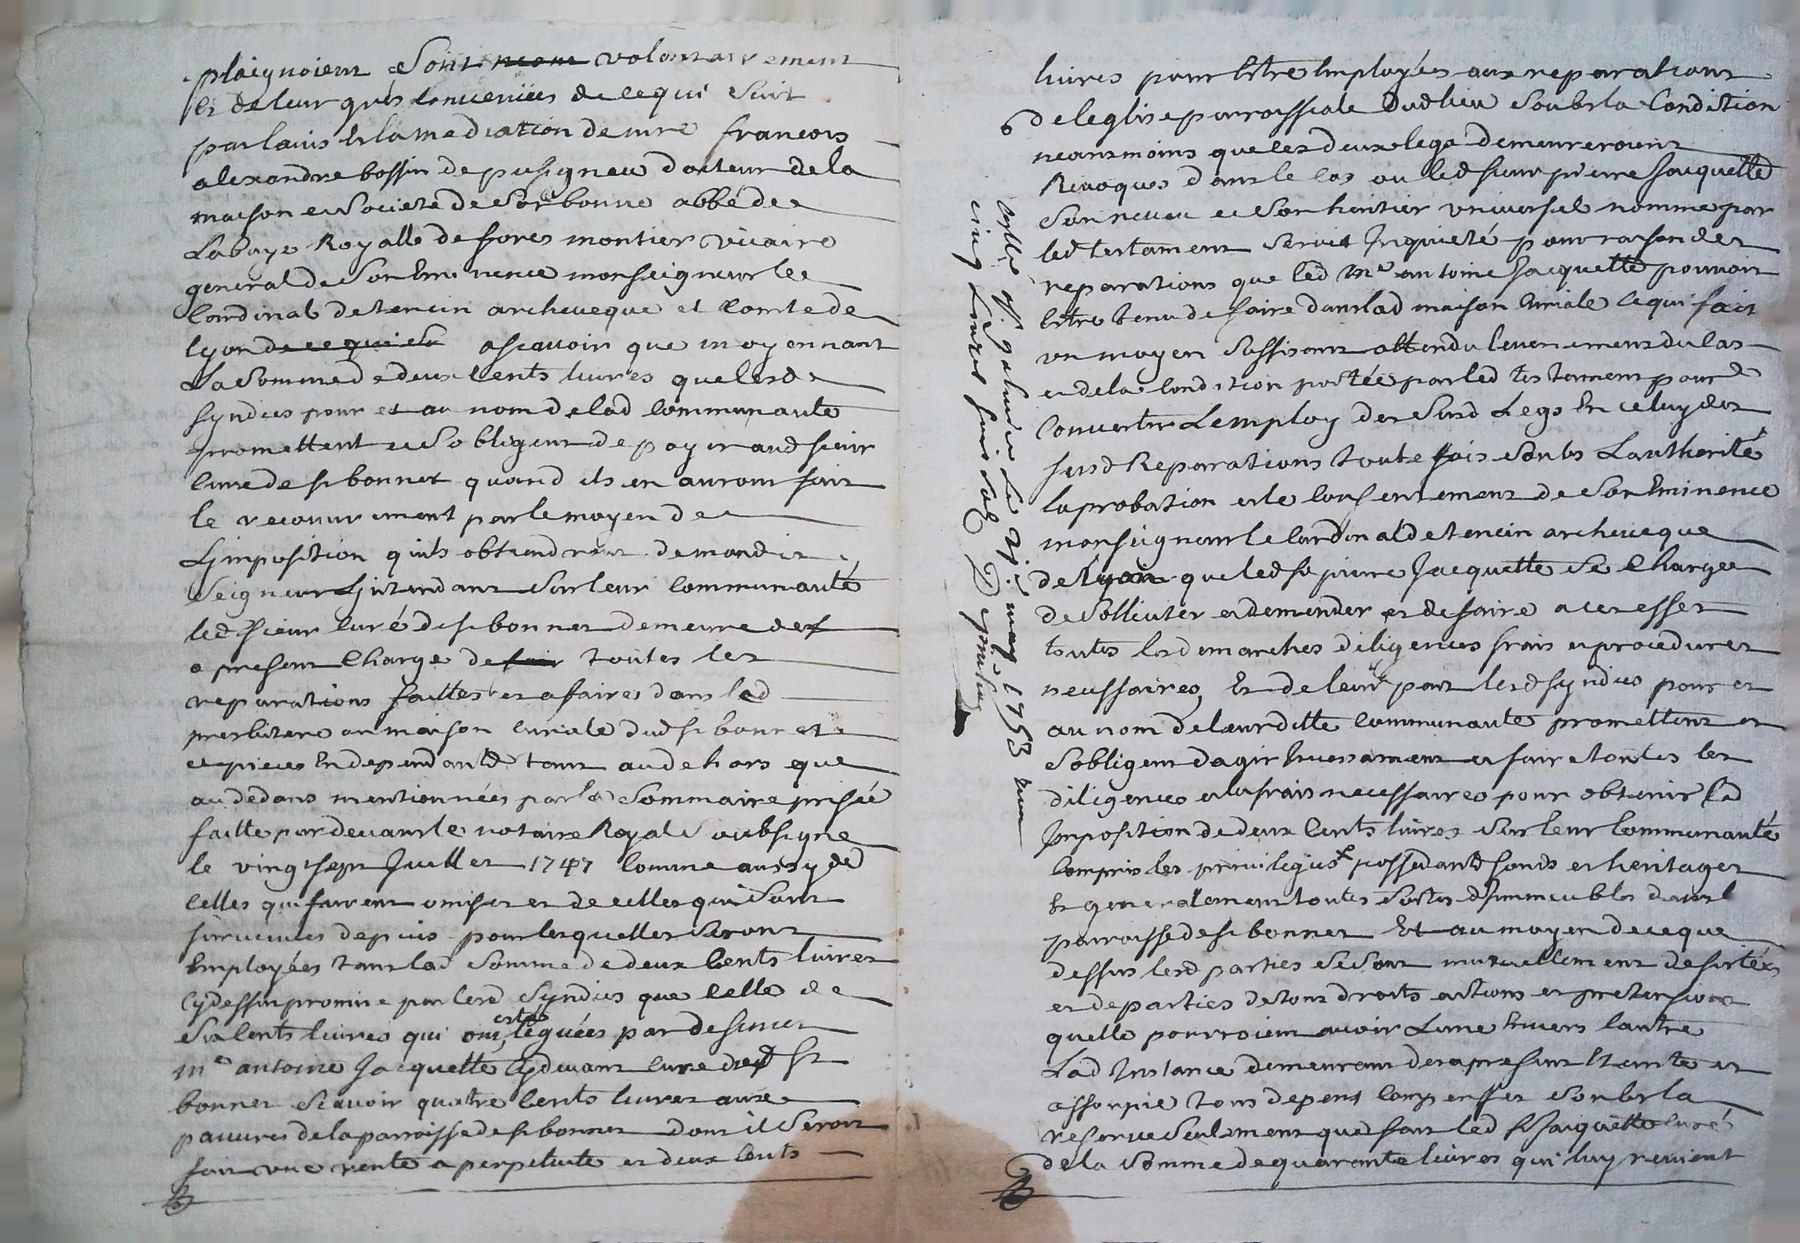 plaignoient Sont volontairement
Et de leur grés convenües de ce qui Suit
par lavis Et la mediation de mre francois
alexandre bossin de pusigneu docteur de la
maison et Societé de Sorbonne abbé de
Labaye Royalle de fores montier vicaire
general de Son Eminence monseigneur le
Cardinal de tencin archeveque et Comte de
lyon de ce qui Su ascavoir que moyennant
La Somme de deux Cents livres que lesd
Syndics pour et au nom de lad Communauté
promettent et Sobligent de payer aud sieur
Curé de st bonnet quand ils en auront fait
le recouvrement par le moyen de
Limposition quils obtiendront de mondit
Seigneur Lintendant Sur leur Communauté
led sieur Curé de st bonnet demeure des
a present Chargé de fair toutes les
reparations faittes et affaires dans led
presbitere ou maison curiale dud st bonnet
et pieces En dependantes tant au dehors que
au dedans mentionnées par la Sommaire prisée
faitte par devant le notaire Royal Soubsigné
le vingt sept Juillet 1747 Comme aussy de
Celles qui furent omises et de celles qui Sont
Survenues depuis pour lesquelles Seront
Employées tant lad Somme de deux Cents livres
Cydessus promise par lesd Syndics que Celle de
Six Cents livres qui ont estes leguées par deffunct
me antoine Jacquette Cydevant curé dud st
bonnet Scavoir quatre Cents livres aux
pauvres de la parroisse de st bonnet dont il Seroit
fait une rente a perpetuité et deux Cents
livres pour Estre Employés aux reparations
de leglise parroissiale Dudlieu Soubs la Condition
neansmoins que les deux legs demeureroient
Revoqués dans le Cas ou led sieur pierre Jacquette
Son neveu et Son heritier universel nommé par
led testament Seroit Inquieté pour raison des
reparations que led me antoine Jacquette pouvoit
Estre tenu de faire dans lad maison Curiale Ce qui fait
un moyen Suffisant attendu levenement du Cas
et de la Condition portée par led testament pour
Convertir Lemploy des Susd Legs En celuy des
Susd Reparations toute fois Soubs Lautherité
laprobation et le Consentement de Son Eminence
monseigneur le Cardinal de tencin archeveque
de Lyon que led sr pierre Jacquette Se Charge
de Solliciter et demender et de faire a cet effet
toutes les demarches diligences frais et procedures
necessaires, Et de leur part lesd Syndics pour et
au nom de leurditte Communauté promettent et
Sobligent dagir Incessament et faire toutes les
diligences et les frais necessaires pour obtenir lad
Imposition de deux Cents livres Sur leur Communauté
Compris les privilegiés possedants fonds et heritages
Et generalement toutes Sortes dImmeubles dans l
parroisse de st bonnet Et au moyen de ce que
dessus lesd parties Se Sont mutuellement desistées
et departies de tous droits actions et pretensions
quelle pourroient avoir Lune Envers lautre
Lad Instance demeurant des a present Eteinte et
assoupie tous depens Compensés Soubs la
reserve Seulement que fait led sr Jacquette Curé
de la Somme de quarante livres qui luy revient
La vj may 1753 reçu
cinq Livres huit sols